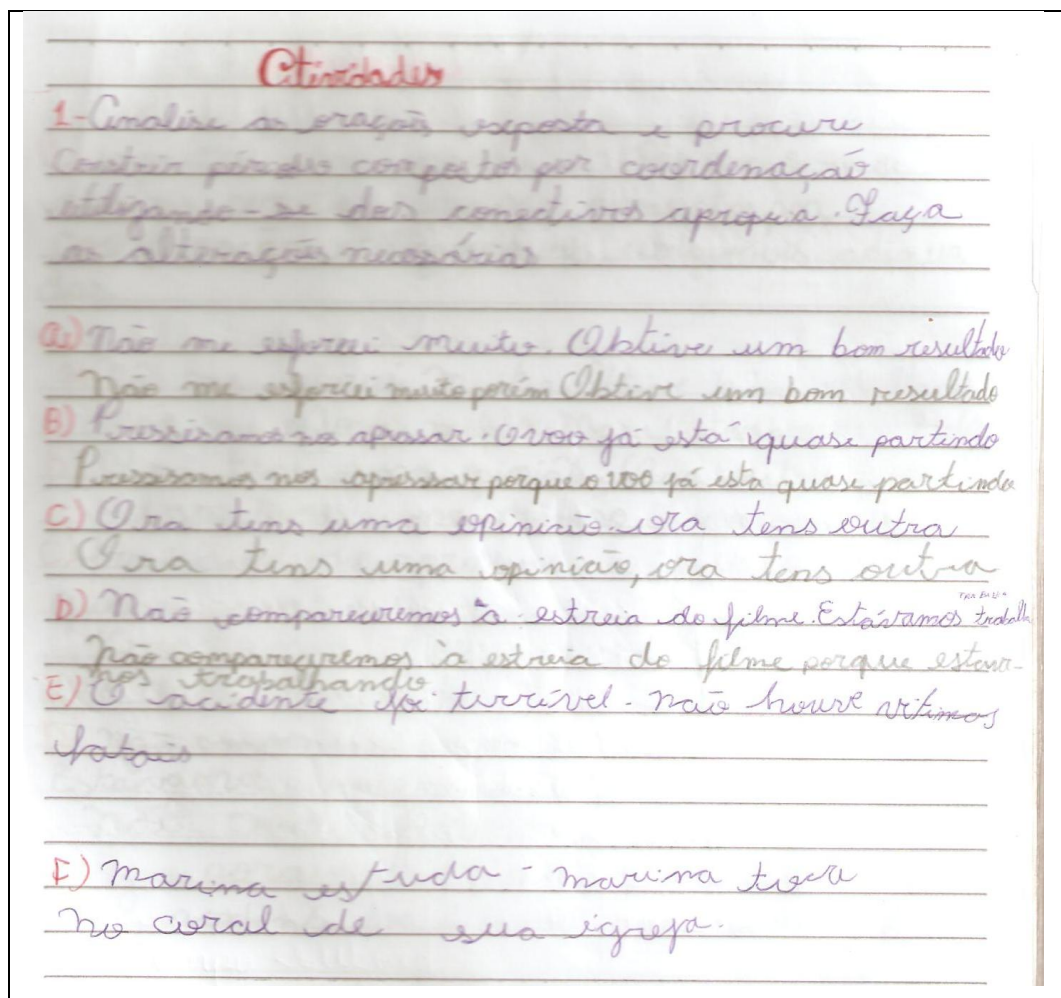 Atividades
1-Analise as orações exposta e procure
Construir períodos compostos por coordenação
utilizando-se dos conectivos apropia. Faça
as alterações necessárias
a) Não me esforcei muito. Obtive um bom resultado
Não me esforcei muito porém Obtive um bom resultado
B) Pressisamos nos apressar. O voo já está quase partindo
Pressisamos nos apressar porque o voo já esta quase partindo
C) Ora tens uma opinião. ora tens outra
Ora tens uma opinião, ora tens outra
D) Não compareceremos à estreia do filme. Estávamos
Não compareceremos à estreia do filme porque estava-
mos trabalhando
E) O acidente foi terrível. não houve vítimas
fatais
F) Marina estuda - marina toca
no coral de sua igreja.